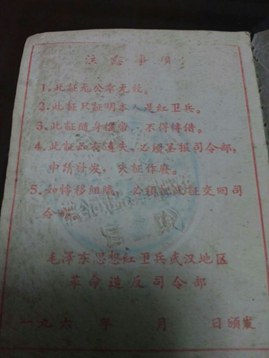 注意事项
1.此证无公章无效。
2.此证只证明本人是红卫兵。
3.此证随身携带，不得转借。
4.此证如有遗失，必须呈报司令部，
申请补发，失证作废。
5.如转移组织，必须把此证交回司
令部。
毛泽东思想红卫兵武汉地区
革命造反司令部
一九六 年 月 日颁发